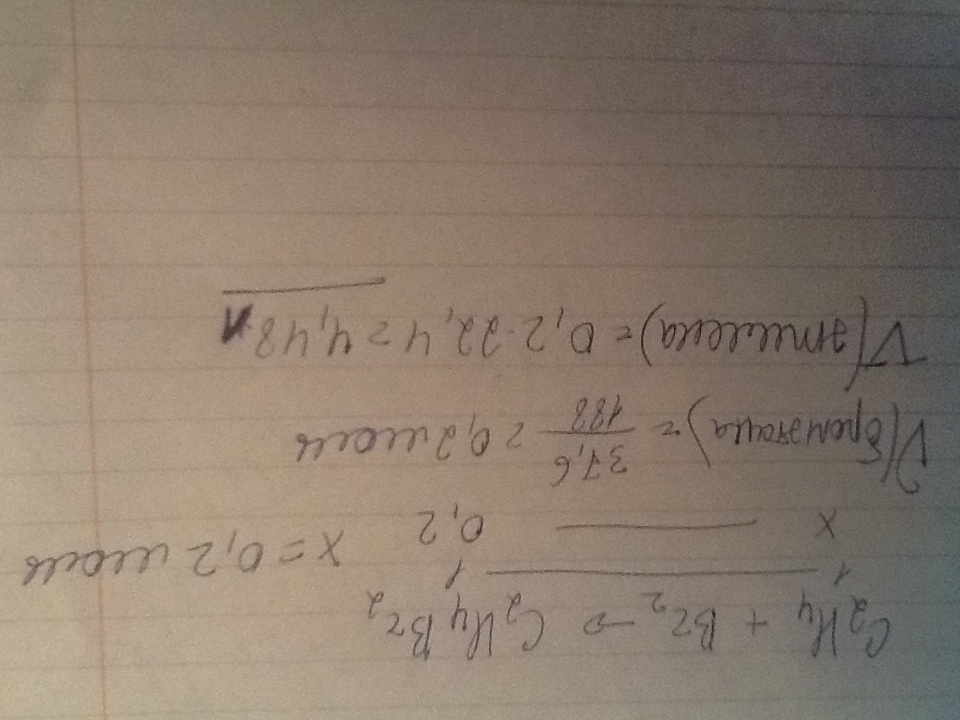 C₂H₄ + Br₂ → C₂H₄Br₂
1 ——— 1
x ——— 0,2 x = 0,2 моль
ν(бромэтана) = 37,6/188 = 0,2 моль
V(этилена) = 0,2·22,4 = 4,48 л